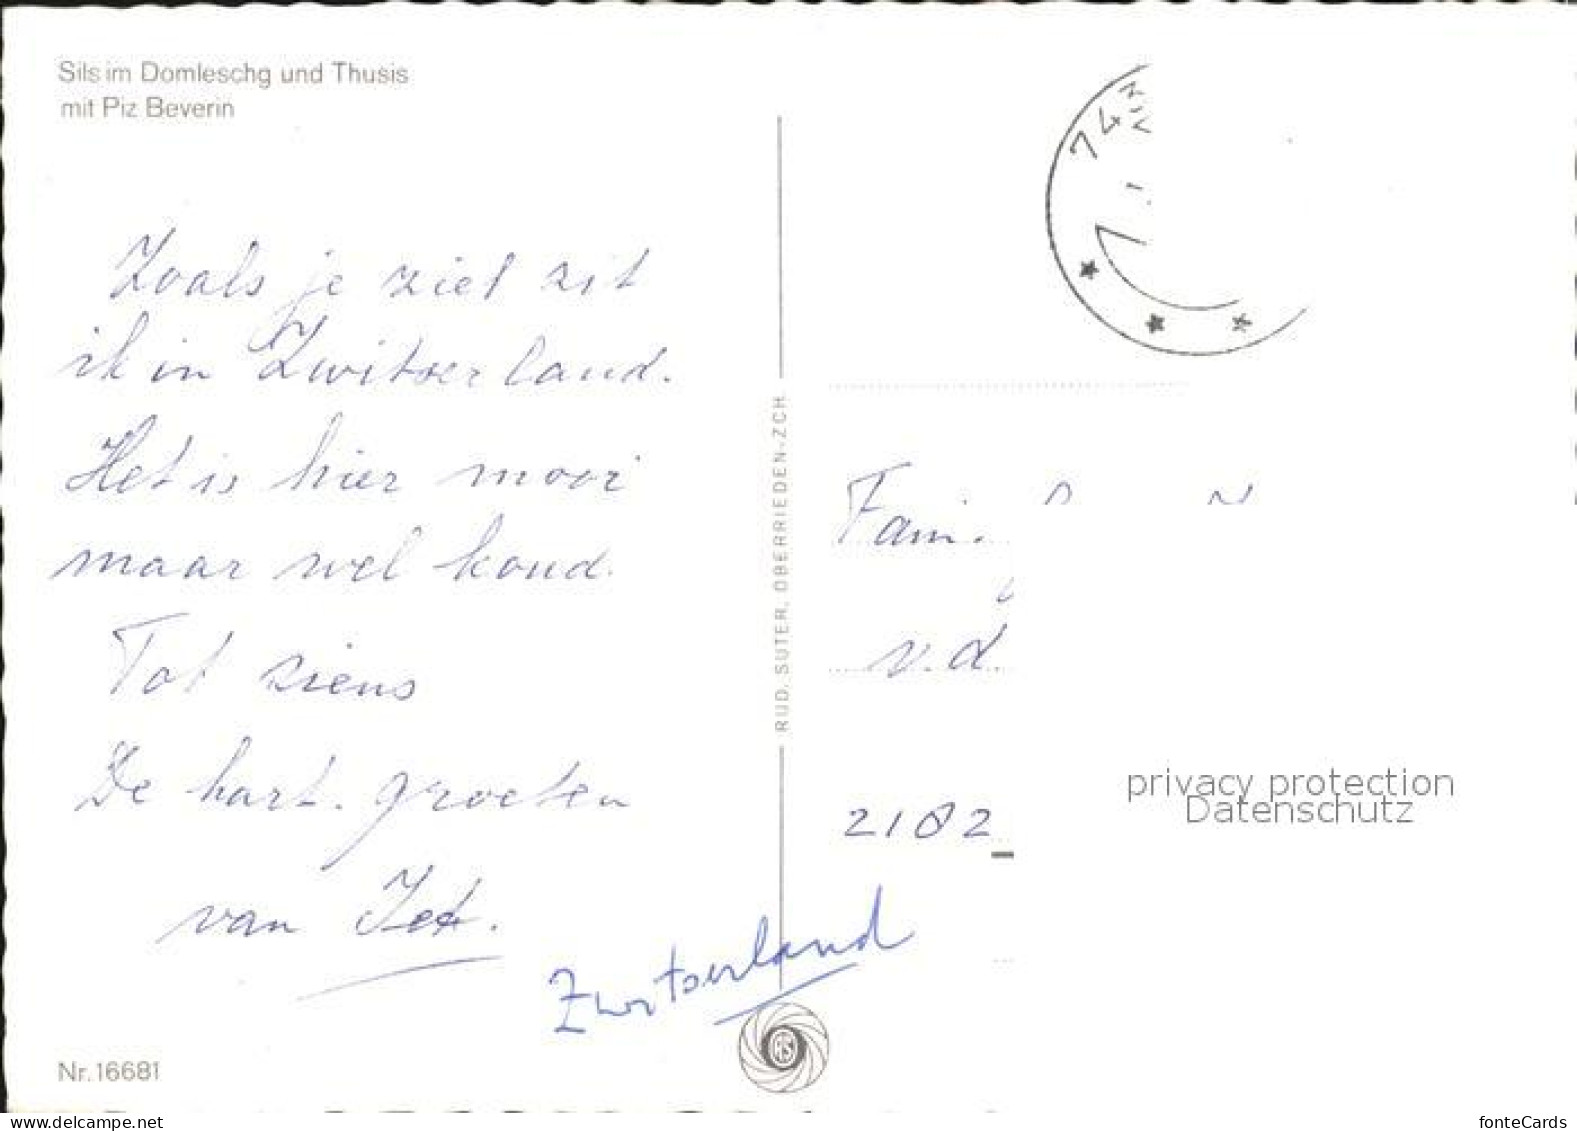 Sils im Domleschg und Thusis
mit Piz Beverin
Zoals je ziet zit
ik in Zwitserland.
Het is hier mooi
maar wel koud.
Tot ziens
De hart. groeten
van Jet.
Zwitserland
Nr. 16681
RUD. SUTER, OBERRIEDEN-ZCH
743
Fam.
v.d.
2182
privacy protection
Datenschutz
www.delcampe.net
fonteCards